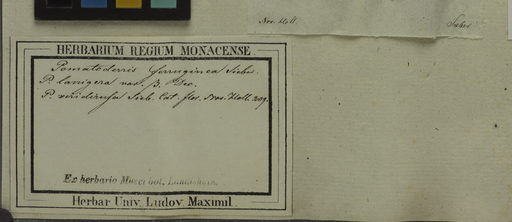 Nov. Holl. Sieber
HERBARIUM REGIUM MONACENSE.
Pomatoderris ferruginea Sieb.
P. lanigera var. β. Dec.
P. viridirufa Sieb. Cat. flor. Nov. Holl. 209.
Ex herbario Musei bot. Landishut.
Herbar. Univ. Ludov. Maximil.